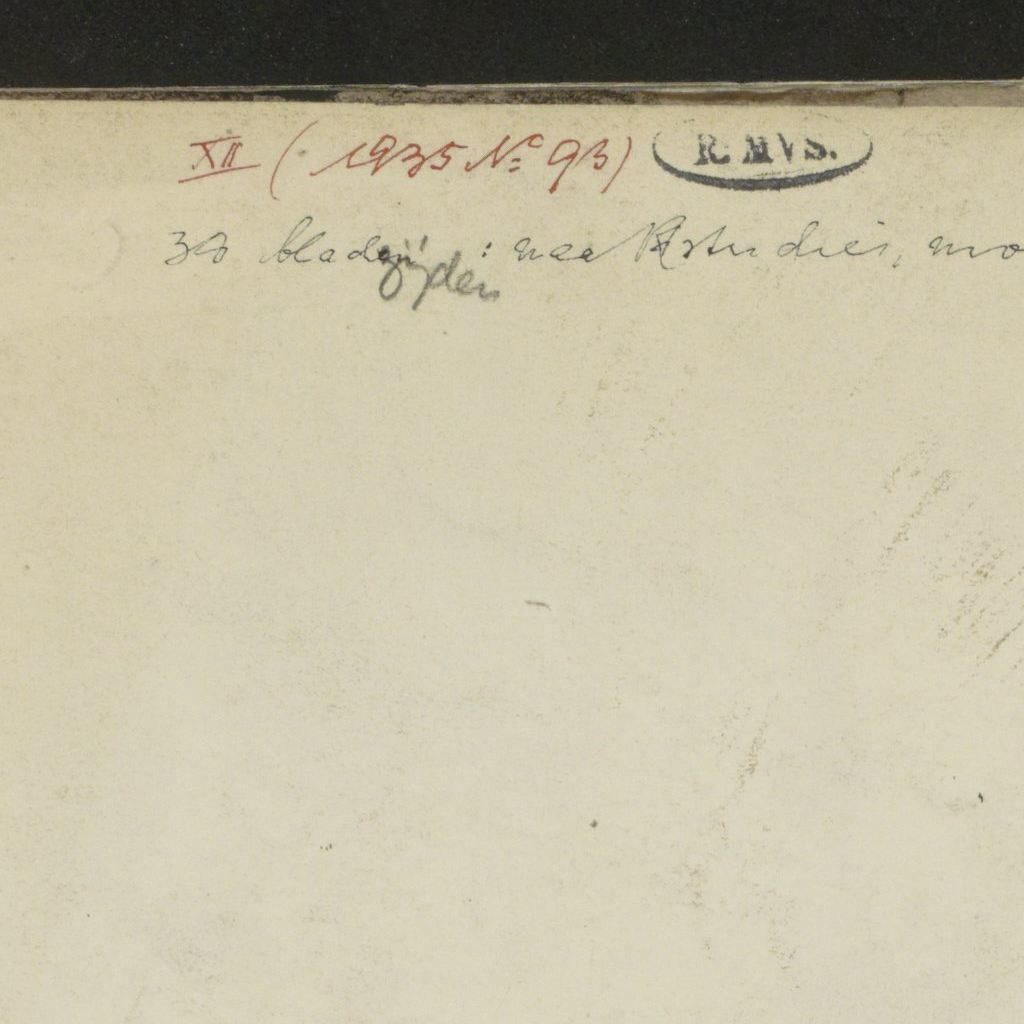 XII (1935 Nº 93) R. MVS.
30 bladzijden : naaktstudies, mo